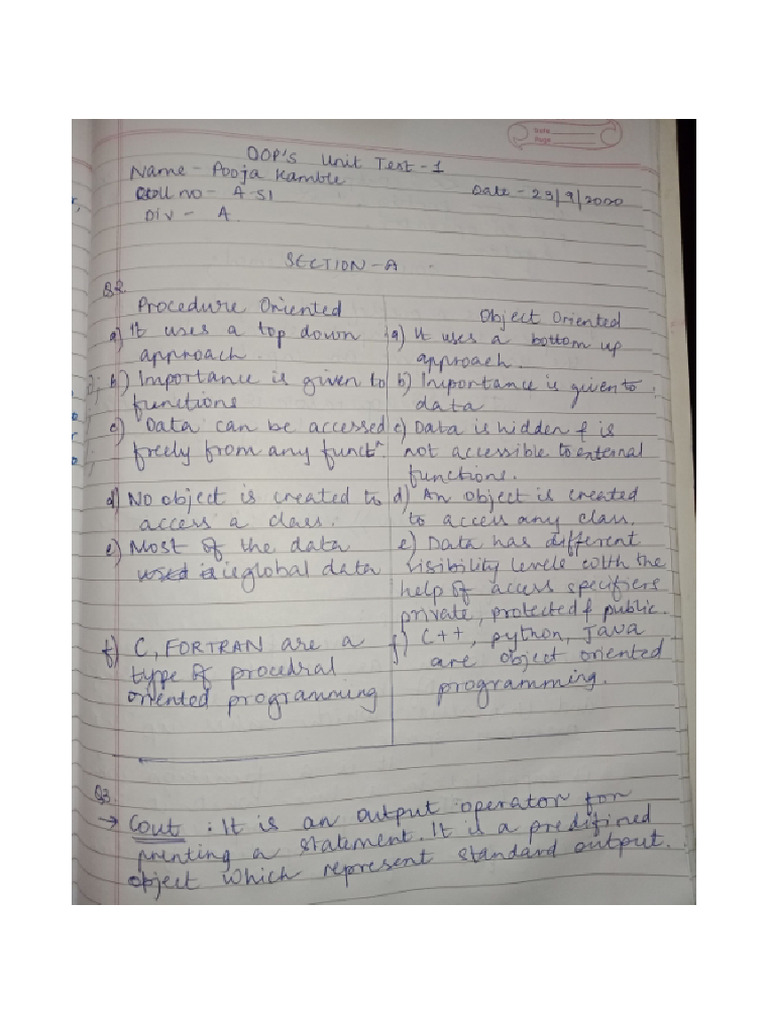 Date
Page
OOP's Unit Test - 1
Name - Pooja Kamble
Roll no - A-51
Date - 23/9/2020
Div - A.
SECTION - A
Q2.
Procedure Oriented
a) It uses a top down
approach.
b) Importance is given to
functions
c) Data can be accessed
freely from any functn.
d) No object is created to
access a class.
e) Most of the data
used is ie global data
f) C, FORTRAN are a
type of procedral
oriented programming
Object Oriented
a) It uses a bottom up
approach.
b) Importance is given to
data
c) Data is hidden & is
not accessible to external
functions.
d) An object is created
to access any class.
e) Data has different
visibility levels with the
help of access specifiers
private, protected & public.
f) C++, python, Java
are object oriented
programming.
Q3.
→ Cout : It is an output operator for
printing a statement. It is a predifined
object which represent standard output.